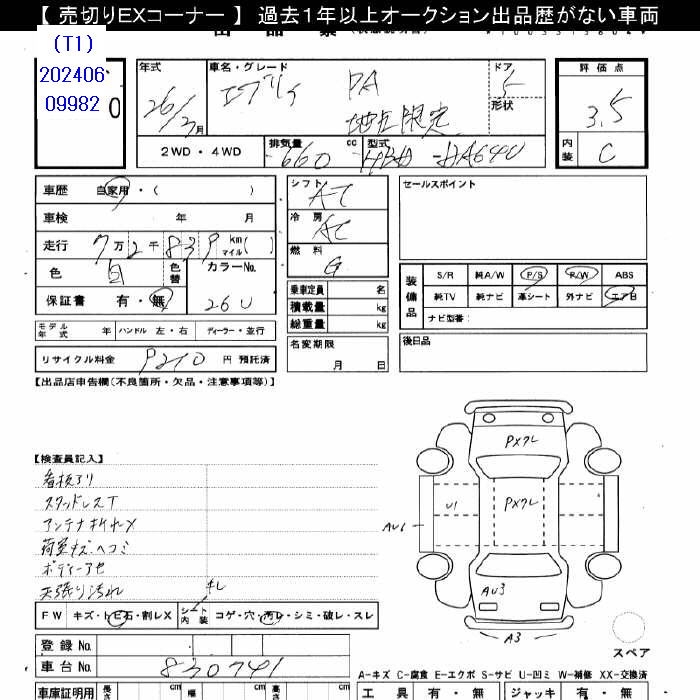 【 売切りEXコーナー 】 過去1年以上オークション出品歴がない車両
(T1)
202406
09982
0
年式
26/3月
車名・グレード
エブリィ PA
地区限定
ドア
5
形状
評 価 点
3.5
内装
C
2WD ・ 4WD
排気量
660 cc
型式
HBD - DA64V
車歴 自家用 ・ ( )
車検 年 月
走行 7万2千839 km マイル ( )
色 白 色替
カラーNo.
26U
保証書 有・無
モデル年式 年 ハンドル 左・右 ディーラー・並行
リサイクル料金 9210 円 預託済
シフト
AT
冷 房
AC
燃 料
G
乗車定員 名
積載量 kg
総重量 kg
名変期限
月 日
セールスポイント
装備品
S/R 純A/W P/S P/W ABS
純TV 純ナビ 革シート 外ナビ エアB
ナビ型番:
後日品
【出品店申告欄(不良箇所・欠品・注意事項等)】
【検査員記入】
看板アリ
スタッドレスT
アンテナ折れX
荷室キズ、ヘコミ
ボディーアセ
天張り汚れ
キレ
FW キズ・トビ石・割レX
シート内装 コゲ・穴・汚レ・シミ・破レ・スレ
PXワレ
PXワレ
U1
AU1
AU3
A3
スペア
登 録 No.
車 台 No. 830741
A-キズ C-腐食 E-エクボ S-サビ U-凹ミ W-補修 XX-交換済
車庫証明用 長さ cm 幅 cm cm
工 具 有 ・ 無 ジャッキ 有 ・ 無